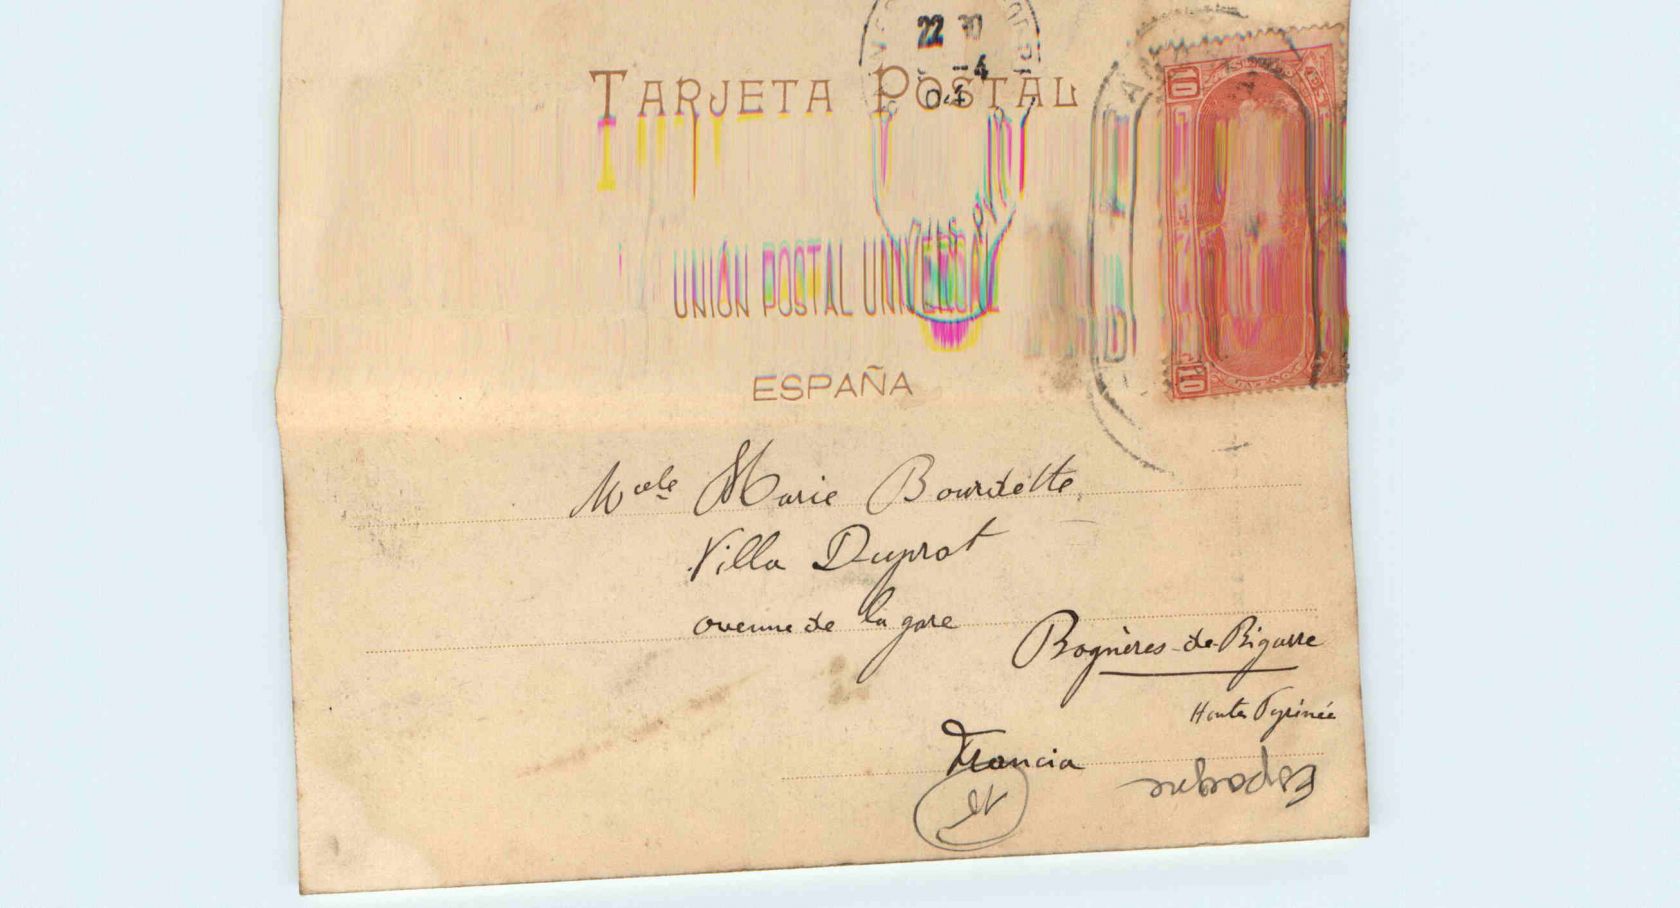 22 30
-4
04
TARJETA POSTAL
10
10
UNIÓN POSTAL UNIVERSAL
ESPAÑA
Melle Marie Bourdette
Villa Duprat
avenue de la gare
Bagnères-de-Bigorre
Hautes Pyrénée
Francia
Espagne